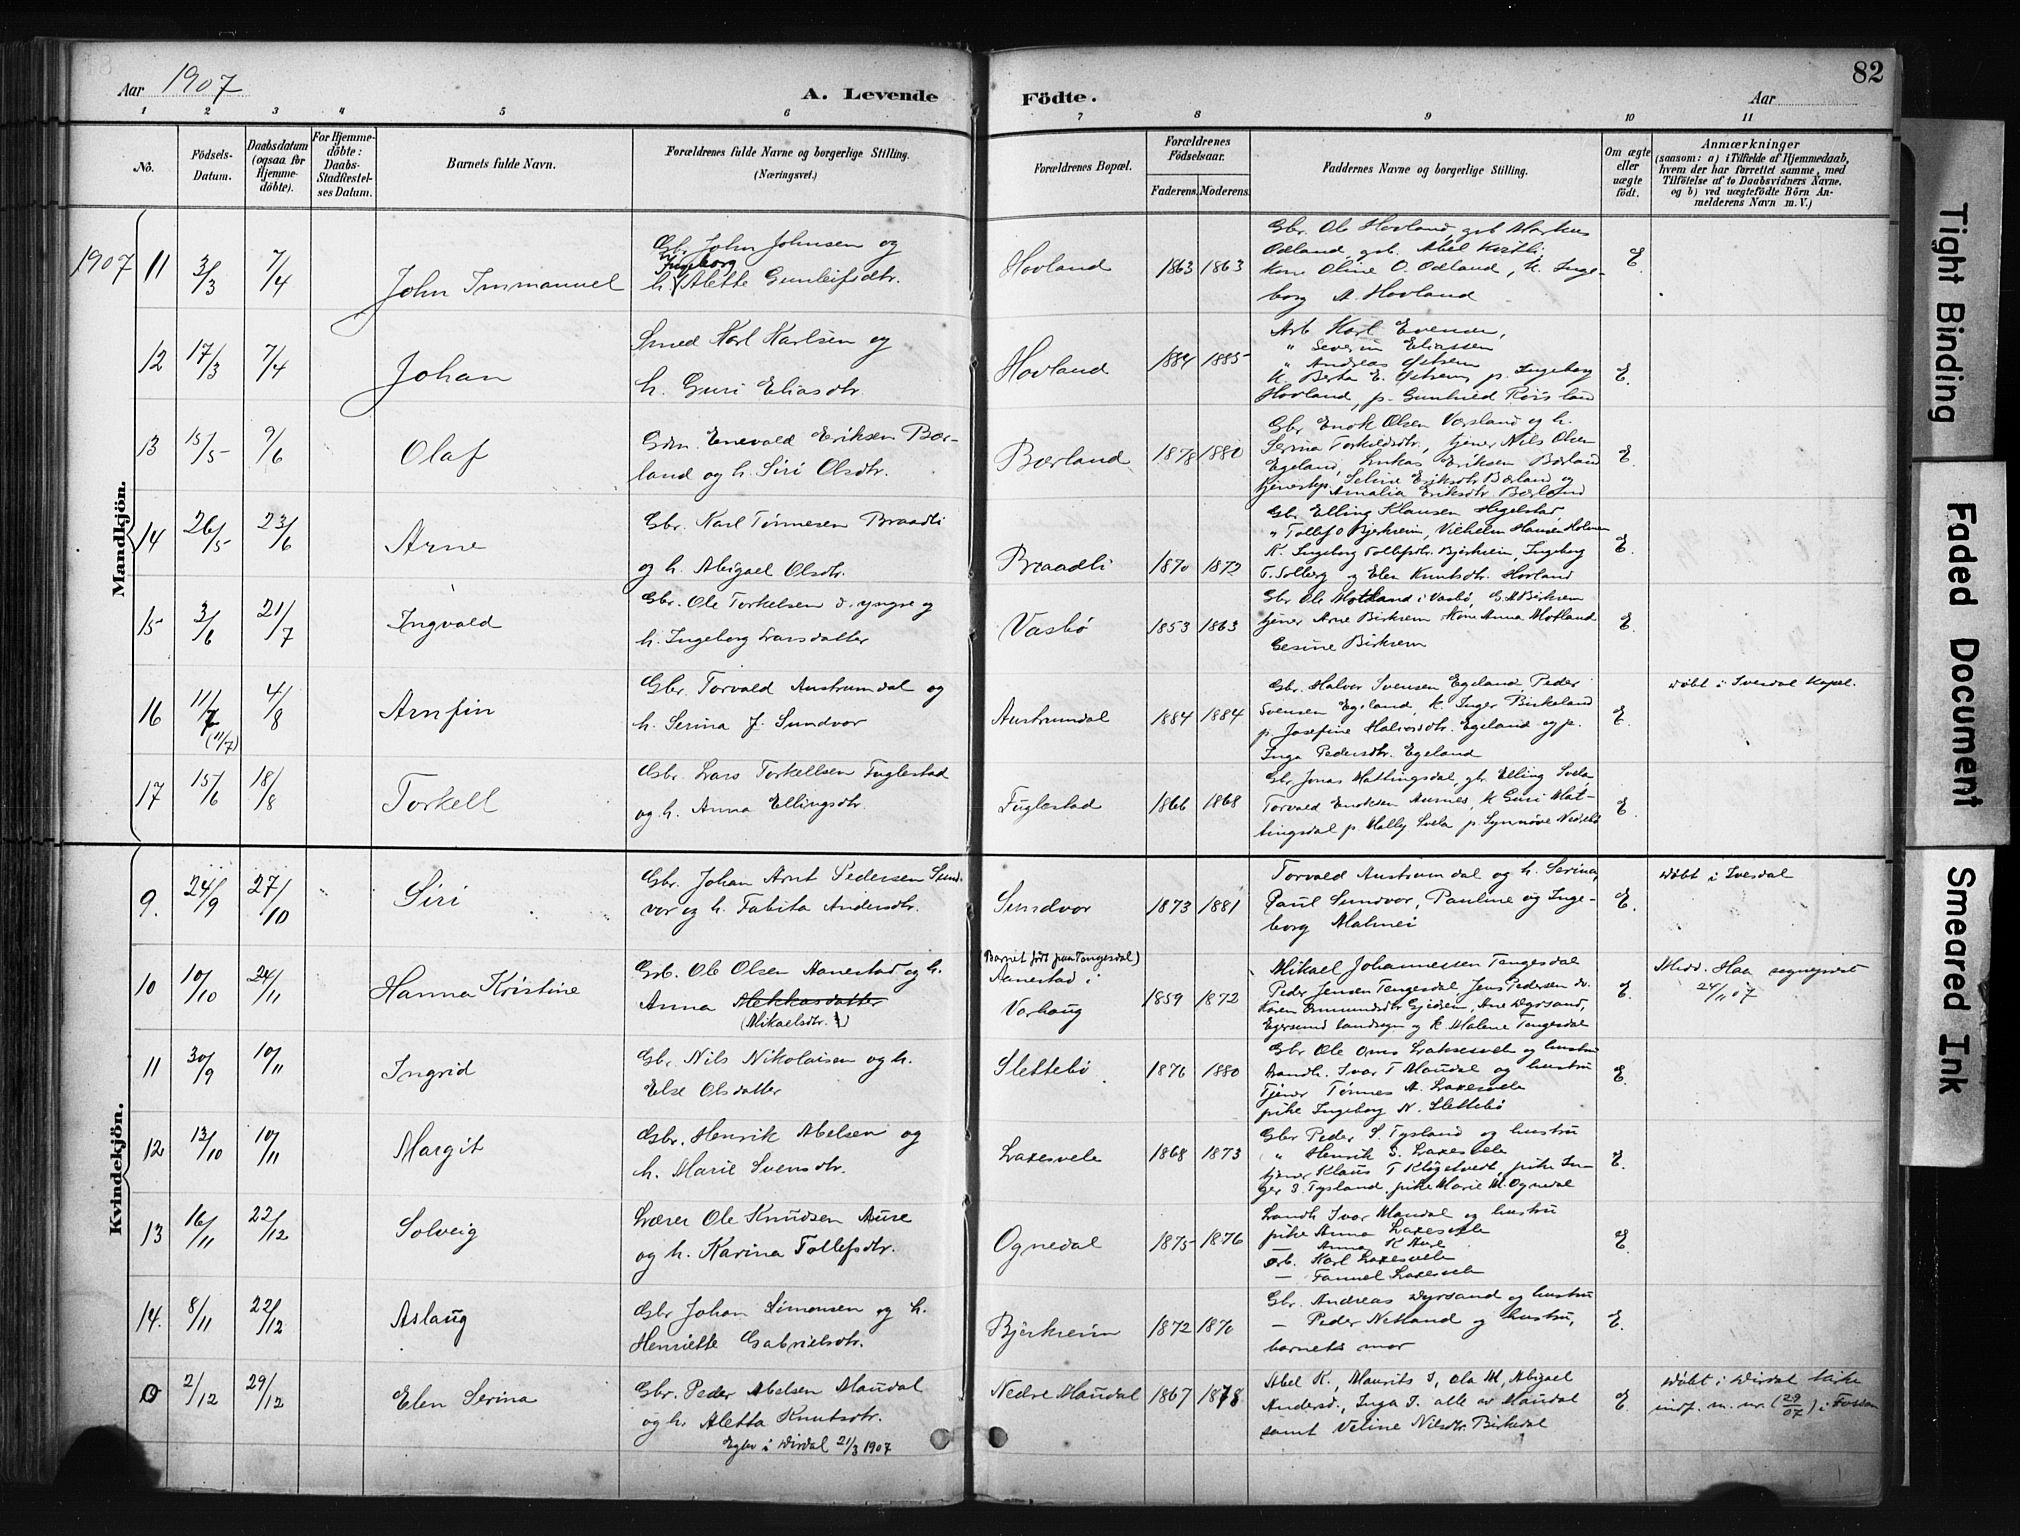 82
Aar 1907
A. Levende
Födte.
Aar
1 2 3 4 5 6 7 8 9 10 11
No.
Födsels-Datum.
Daabsdatum (ogsaa for Hjemme-döbte).
For Hjemme-döbte: Daabs-Stadfestel-ses Datum.
Barnets fulde Navn.
Forældrenes fulde Navne og borgerlige Stilling.
(Næringsvei.)
Forældrenes Bopæl.
Forældrenes Födselsaar.
Faderens. Moderens.
Faddernes Navne og borgerlige Stilling.
Om ægte eller uægte födt.
Anmærkninger
(saasom: a) i Tilfælde af Hjemmedaab,
hvem der har forrettet samme, med
Tilföielse af to Daabsvidners Navne.
og b) ved uægtefödte Börn An-
melderens Navn m. V.)
Mandkjön.
1907 11 3/3 7/4 John Immanuel
Gbr. John Johnsen og
Ingeborg
h. Alette Gunleifsdtr.
Hovland 1863 1863
Gbr. Ole Hovland, gbr Markus
Odland, gbr. Abel
Kone Oline O. Odland, K. Inge-
borg A. Hovland
E.
12 17/3 7/4 Johan
Smed Karl Karlsen og
h. Guri Eliasdtr.
Hovland 1884 1885
Arb Karl Evensen,
" Severin Eliassen
" Andreas
K. Berta E. p. Ingeborg
Hovland, p. Gunhild
E.
13 15/5 9/6 Olaf
Gdm. Enevald Eriksen Bær-
land og h. Siri Olsdtr.
Bærland 1878 1880
Gbr Enok Olsen Vasland og h.
Serina Torkildsdtr, tjener Nils Olsen
Egeland, Lukas Eriksen Bærland
Seline Eriksdtr Bærland og
Amalia Eriksdtr. Bærland
E.
14 26/5 23/6 Arne
Gbr. Karl Tønnesen Braadli
og h. Abigael Olsdtr.
Braadli 1870 1872
Gbr. Elling Klausen Hegelstad
" Tollef O Bjerkreim, Vilhelm Hansen Holmen
K. Ingeborg Tollefsdtr. Bjerkreim, Ingeborg
T. Solberg og Elen Knutsdtr. Hovland
E.
15 3/6 21/7 Ingvald
Gbr. Ole Torkelsen d. yngre og
h. Ingeborg Larsdatter
Vasbø 1853 1863
Gbr Ole Motland i Vasbø,
tjener Arne Birkrem Kone Anna Motland
Gesine Birkrem
E.
16 11/7 (11/7) 4/8 Arnfin
Gbr. Torvald Austrumdal og
h. Serina J. Sundvor
Austrumdal 1884 1884
Gbr. Halvor Svensen Egeland Peder
Svensen Egeland, K. Inger Birkeland
p. Josefine Halvorsdtr. Egeland og p.
Inga Pedersdtr. Egeland
E.
døbt i Ivesdal Kapel.
17 15/6 18/8 Torkell
Gbr. Lars Torkellsen Fuglestad
og h. Anna Ellingsdtr.
Fuglestad 1866 1868
Gbr. Jonas Mattingsdal, gbr. Elling Svela
Torvald Enoksen Ausnes, K Guri Mat-
tingsdal p. Mally Svela p. Synnøve
E.
Kvindekjön.
9. 24/9 27/10 Siri
Gbr. Johan Arnt Pedersen Sund-
vor og h. Tabita Andersdtr.
Sundvor 1873 1881
Torvald Austrumdal og h. Serina,
Paul Sundvor, Pauline og Inge-
borg Malmei
E.
døbt i Ivesdal
10 10/10 24/11 Hanna Kristine
Gbr. Ole Olsen Aanestad og h.
Anna Mekkasdatter
(Mikaelsdtr.)
(Barnet født paa Tengesdal)
Aanestad i
Varhaug
1859 1872
Mikael Johannessen Tengesdal
Peder Jensen Tengesdal Jens Pedersen do.
Karen Omundsdtr Gjedrem, Ane Dyrsand,
Egersund landsogn og K. Malene Tengesdal
E.
Medd. Haa sogneprest
24/11 07
11 30/9 10/11 Ingrid
Gbr. Nils Nikolaisen og h.
Else Olsdatter
Slettebø 1876 1880
Gbr Ole Laksesvela og hustru
Landh. Ivar T Maudal og hustru
Tjener Tønnes A. Laxesvela
pike Ingeborg N. Slettebø
E.
12 13/10 10/11 Margit
Gbr. Henrik Abelsen og
h. Marie Svensdtr.
Laxesvele 1868 1873
Gbr Peder S. Tysland og hustru
" Henrik S. Laxesvele
tjener Klaus T Kløgetvedt, pike In-
ger S. Tysland, pike Marie M. Ognedal
E.
13 16/11 22/12 Solveig
Lærer Ole Knudsen Aure
og h. Karina Tollefsdtr.
Ognedal 1875 1876
Landh. Ivar Maudal og hustru
pike Anna Laxesvele
— Anna K Aure
arb. Karl Laxesvele
— Laxesvele
E.
14. 8/11 22/12 Aslaug
Gbr Johan Simonsen og h.
Henriette Gabrielsdtr.
Bjerkreim 1872 1870
Gbr. Andreas Dyrsand og hustru
— Peder Netland og hustru,
barnets mor
E.
0 2/12 29/12 Elen Serina
Gbr. Peder Abelsen Maudal
og h. Aletta Knutsdtr.
Egtev i Dirdal 21/3 1907
Nedre Maudal 1867 1878
Abel K., Maurits I, Ola M, Abigael
Andersd., Inga I. alle av Maudal
samt Veline Nilsdtr. Birkedal
E.
døbt i Dirdal kirke
indf. m. nr. (29/07) i Fossan
Tight Binding
Faded Document
Smeared Ink